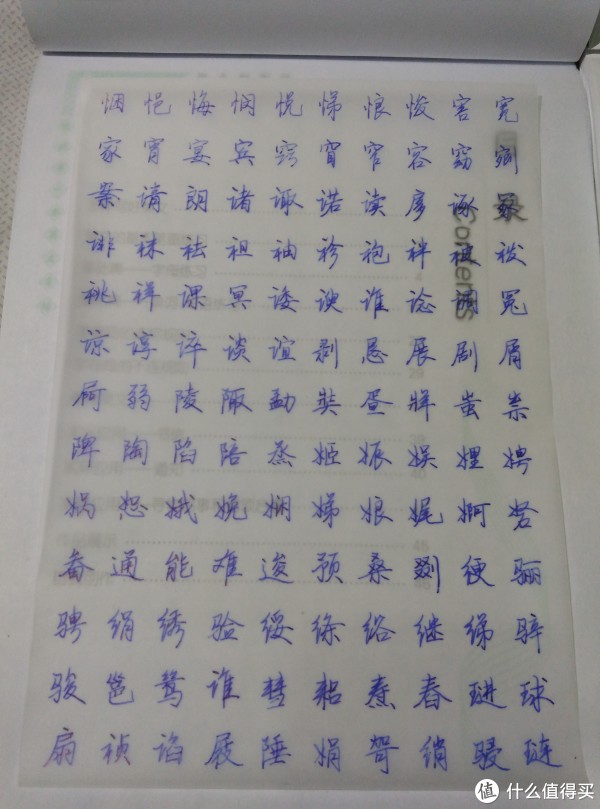 悃 悒 悔 悯 悦 悌 悢 悛 害 宽
家 宵 宴 宾 窍 窅 窄 容 窈 剜
案 请 朗 诸 诹 诺 读 扅 诼 冢
诽 袜 祛 袒 袖 袗 袍 袢 被 袯
祧 祥 课 冥 诿 谀 谁 谂 调 冤
谅 谆 谇 谈 谊 剥 恳 展 剧 屑
屙 弱 陵 陬 勐 奘 疍 牂 蚩 祟
陴 陶 陷 陪 烝 姬 娠 娱 娌 娉
娲 恕 娥 娩 娴 娣 娘 娓 婀 砮
畚 通 能 难 逡 预 桑 剟 绠 骊
骋 绢 绣 验 绥 绦 继 绨 骍
骏 邕 鸶 谁 彗 焘 舂 琎 球
扇 祯 谄 屐 陲 娟 哿 绡 骎 琏
录
Contents
45
值 什么值得买